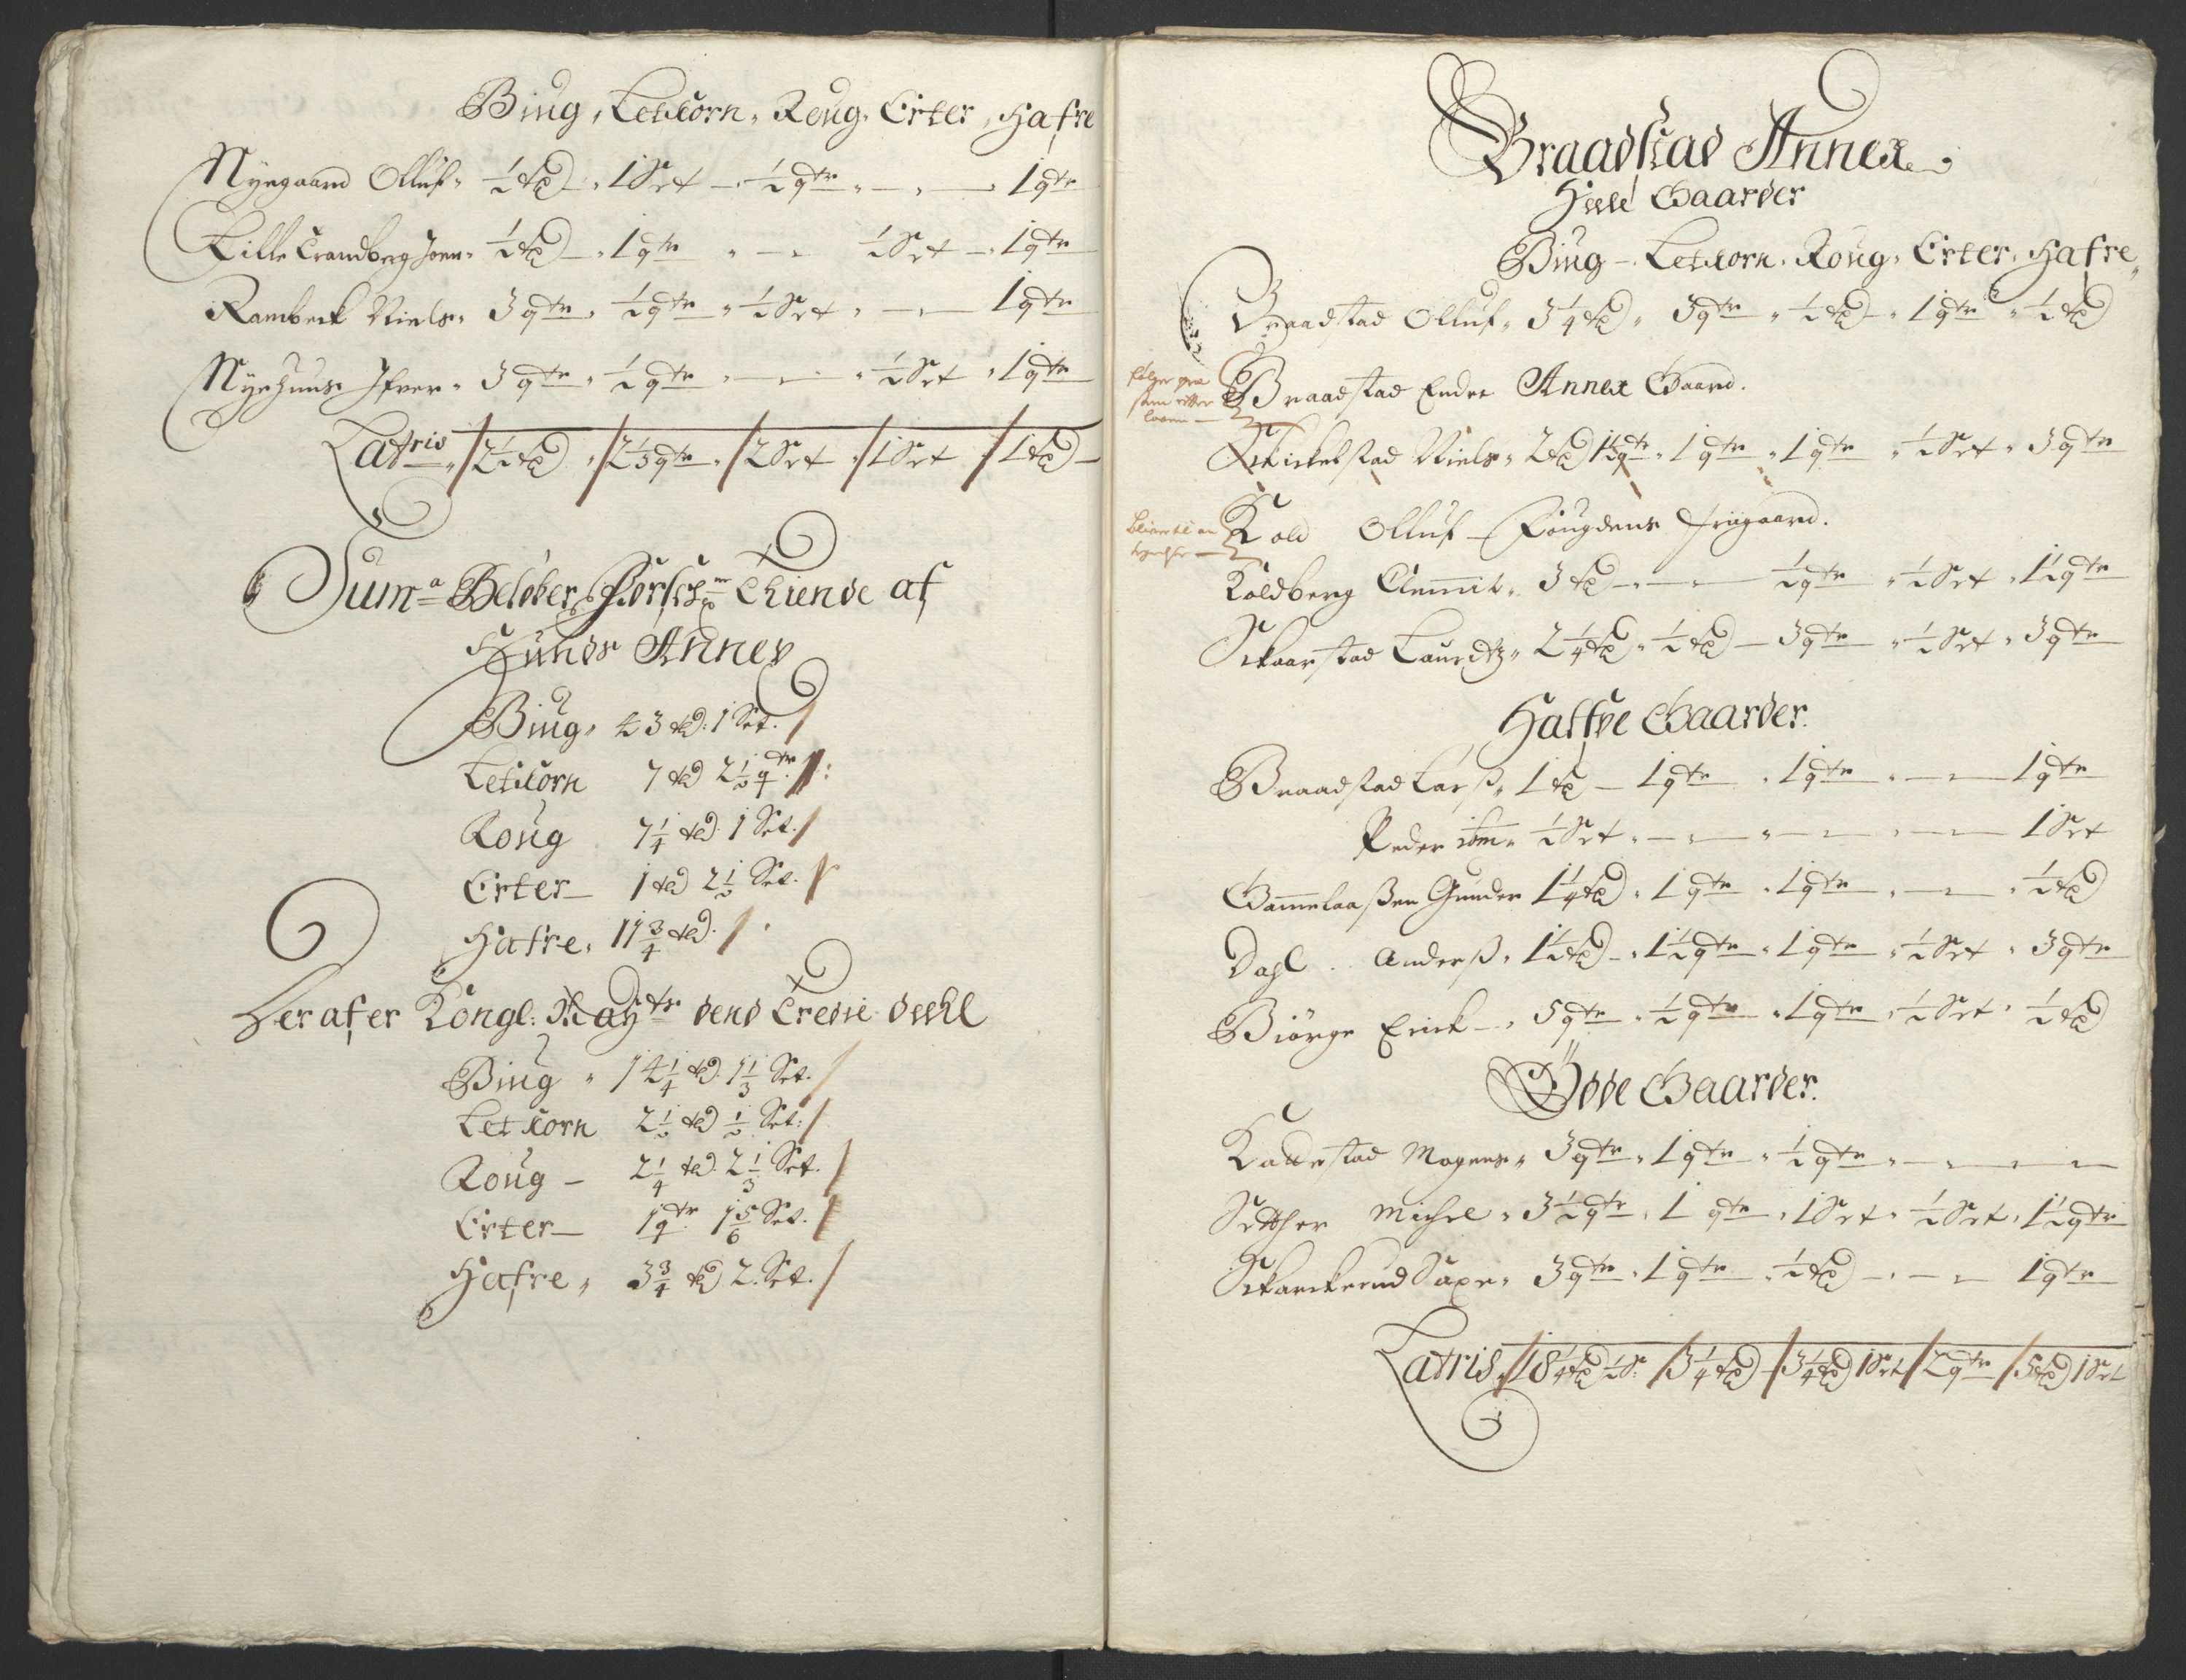 Biug, Letkorn, Roug, Erter, Hafre
Nyegaard Olluf, ½ td, 1 Set, ½ qtr, — 1 qtr
Lille Trandberg Joen, ½ td, 1 qtr, — ½ Set, 1 qtr
Rambeck Niels, 3 qtr, ½ qtr, ½ Set, — 1 qtr
Nyehuus Ifver, 3 qtr, ½ qtr, — ½ Set, 1 qtr
Latris, / 2½ td, / 2⅓ qtr, / 2 Set / 1 Set / 1 td
Suma Beløber Korn Thiende af
Hunds Annex
Biug, 43 td: 1 Set. /
Letkorn 7 td 2½ qtr. /
Roug 7¼ td 1 Set. /
Erter 1 td 2½ Set. /
Hafre, 11¾ td. /
Heraf er Kongl: Maytz dend Tredie deehl
Biug, 14¼ td. 1⅓ Set. /
Letkorn 2½ td ½ Set: /
Roug 2¼ td. 2⅓ Set. /
Erter 1 qtr. 1⅚ Set. /
Hafre, 3¾ td 2. Set. /
Braadstad Annex
Heele Gaarder
Biug, Letkorn, Roug, Erter, Hafre,
Braadstad Olluf, 3¼ td, 3 qtr, ½ td, 1 qtr, ½ td
Braadstad Endre Annex Gaard.
Schickelstad Niels, 2 td 1½ qtr, 1 qtr, 1 qtr, ½ Set, 3 qtr
Kold Olluf Fougdens friigaard.
Koldberg Clemmit, 3 td, — ½ qtr, ½ Set, 1½ qtr
Skaarstad Lauridtz, 2¼ td, ½ td, 3 qtr, ½ Set, 3 qtr
Halfve Gaarder.
Braadstad Larß, 1 td, 1 qtr, 1 qtr, — 1 qtr
Peder ibm, ½ Set, — 1 Set
Gammelaaßen Gunder 1¼ td, 1 qtr, 1 qtr, — ½ td
Dahl Anderß, 1½ td, 1½ qtr, 1 qtr, ½ Set, 3 qtr
Biørge Erick, 5 qtr, ½ qtr, 1 qtr, ½ Set, ½ td
Øde Gaarder.
Kattestad Mogens, 3 qtr, 1 qtr, ½ qtr, —
Michel, 3½ qtr, 1 qtr, 1 Set, ½ Set, 1½ qtr
Skarckerud Saxe, 3 qtr, 1 qtr, ½ td, — 1 qtr
Latris, / 18¼ td ½ S: / 3¼ td / 3¼ td 1 Set / 2 qtr / 5 td 1 Set